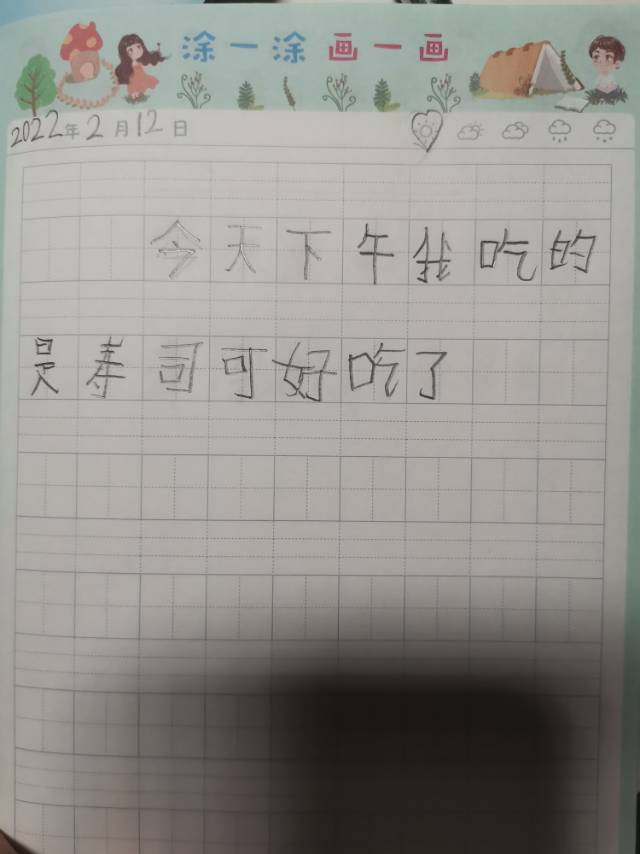 涂一涂 画一画
2022年2月12日
今天下午我吃的
是寿司可好吃了